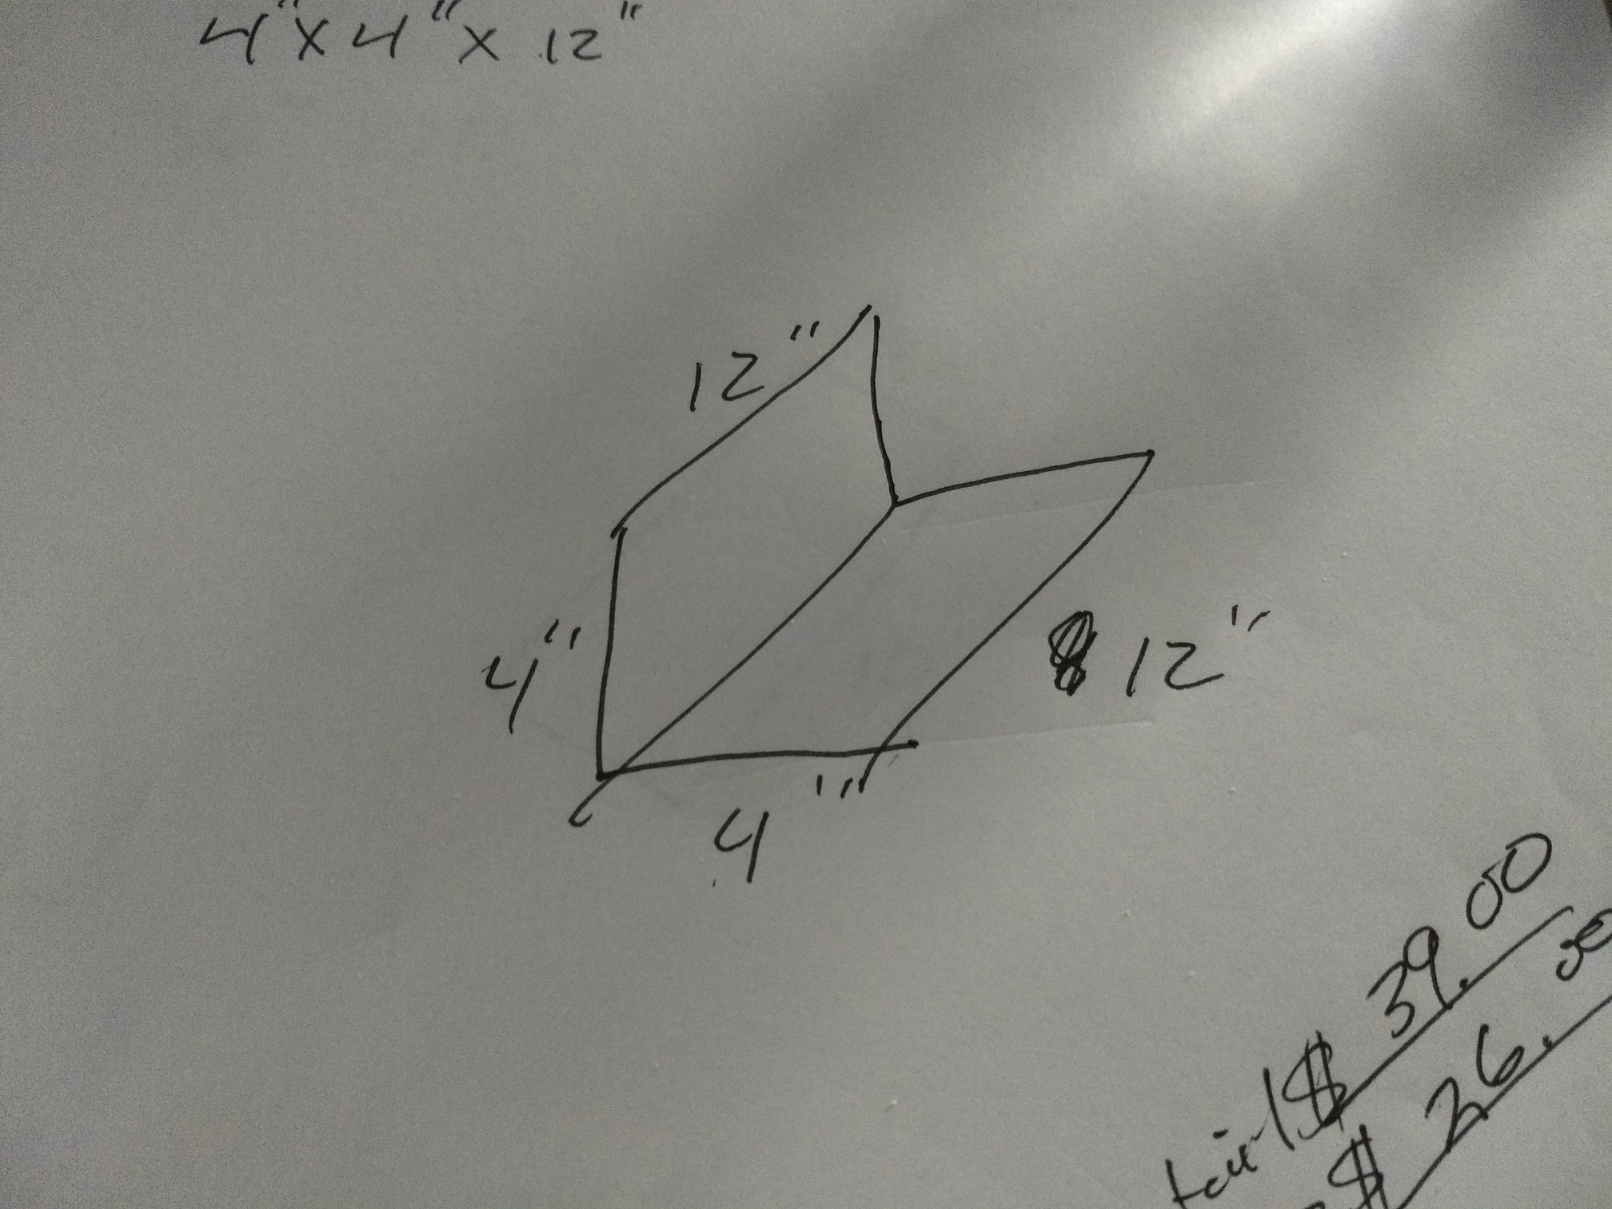 4" x 4" x 12"
12"
4"
12"
4"
$ 39.00
$ 26.